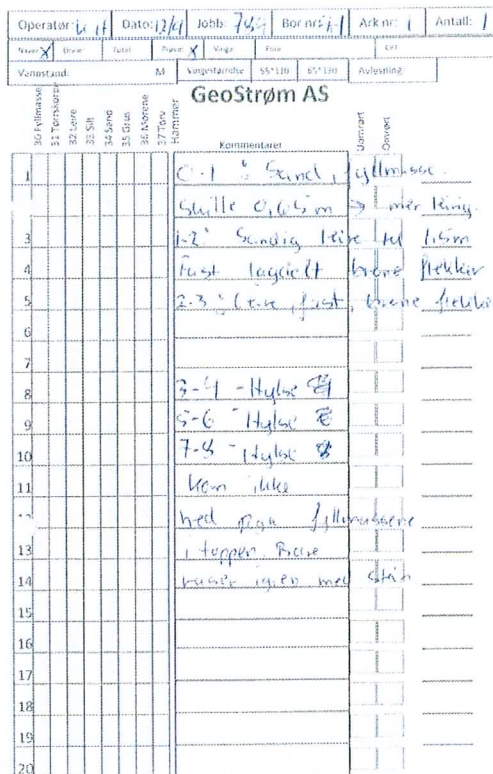 Operatør: Dato: 12/4 Jobb: 784 Bor nr: Ark nr: 1 Antall: 1
Naver X Dreie Total Prøve X Vinge
Vannstand: M Vingestørrelse 55*110 65*130 Avlesning:
GeoStrøm AS
30 Fyllmasse
31 Tørrskorpe
32 Leire
33 Silt
34 Sand
35 Grus
36 Morene
37 Torv
Hammer
Kommentarer
Uomrørt
Omrørt
1 0-1 : Sand, fyllmasse.
Skylle 0,65m → mer leirig.
3 1-2: Sandig leire til 1,5m
4 Fast lagdelt brune flekker
5 2-3: Leire, fast, brune flekker
6
7
8 3-4 - Hylse
9 5-6 - Hylse
10 7-8 - Hylse
11 Kom ikke
ned pga fyllmassene
13 i toppen. Bare
14 raser igjen med stein
15
16
17
18
19
20